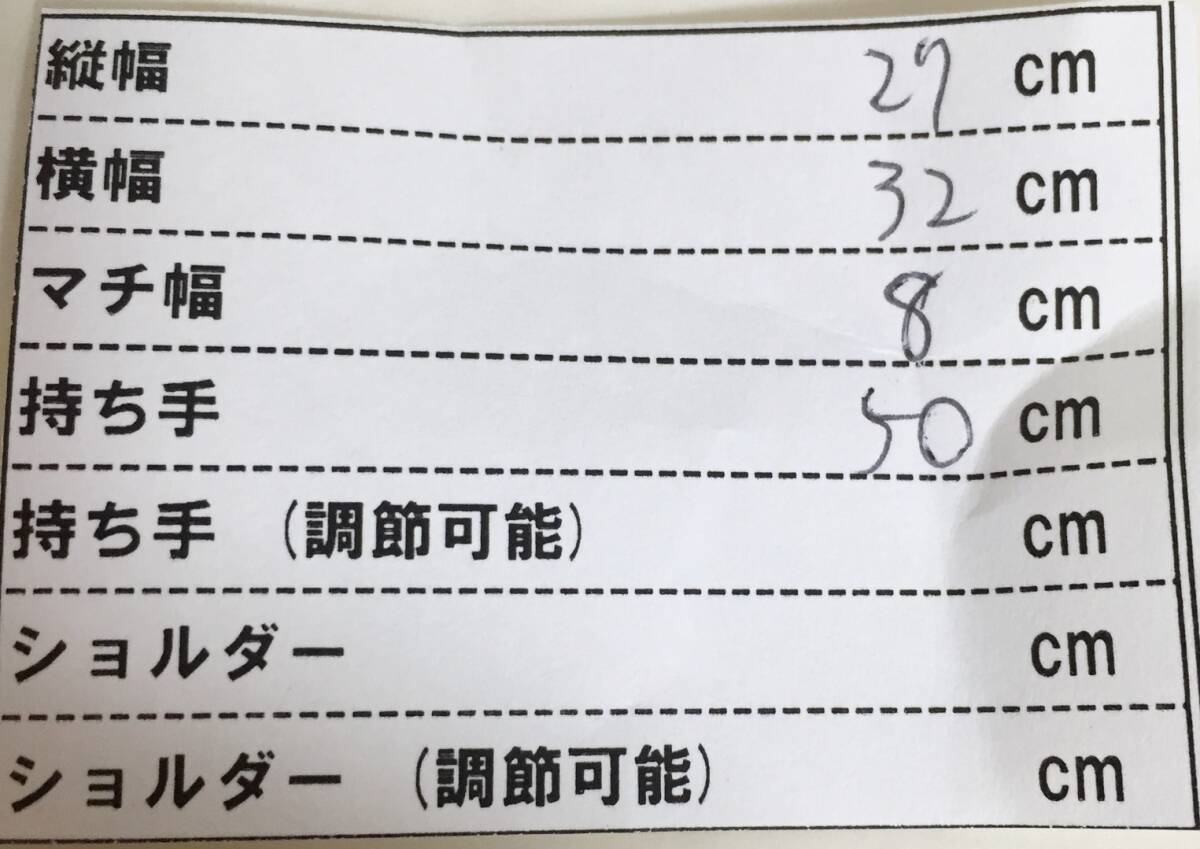 縦幅 27 cm
横幅 32 cm
マチ幅 8 cm
持ち手 50 cm
持ち手 (調節可能) cm
ショルダー cm
ショルダー (調節可能) cm